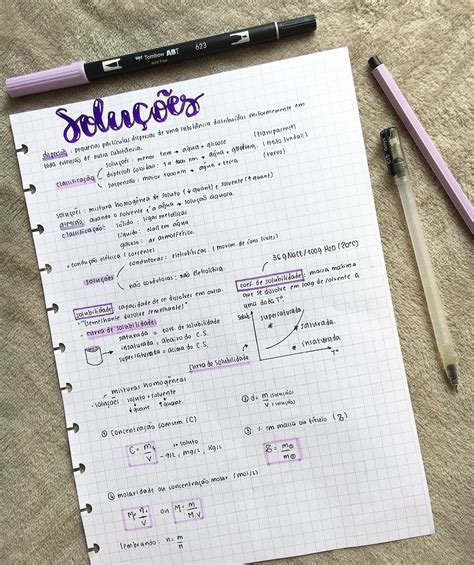 Tombow ABT 623
Soluções
dispersão: pequenas partículas dispersas de uma substância distribuídas uniformemente em
toda extensão de outra substância.
classificação
solução: menor 1nm → água + glicose (transparente)
dispersão coloidal: 1 a 1000 nm → água + gelatina,
suspensão: maior 1000nm → água + terra
soluções: mistura homogênea de soluto (↓ quant) e solvente (↑ quant)
quando o solvente é a água → solução aquosa.
classificação: sólido: ligas metálicas
líquido: NaCl em água
gasoso: ar atmosférico
→ condução elétrica (corrente)
soluções
condutoras: eletrolíticas. (movim. de íons livres)
não condutoras: não eletrolítica.
36g NaCl / 100g H2O (20°C)
solubilidade: capacidade de se dissolver em outra
"(semelhante dissolve semelhante)"
coef. de solubilidade: massa máxima
que se dissolve em 100g de solvente a
uma dada T°
curva de solubilidade
saturada = coef. de solubilidade
insaturada = abaixo do C.S.
supersaturada = acima do C.S.
Solub.
supersaturada
saturada
insaturada
T°
Curva de solubilidade
→ misturas homogêneas
soluções: soluto + solvente
↓ quant ↑ quant
① concentração comum (C)
C = m₁/V → soluto - g/L, mg/L, Kg/L
② d = m/V (solução) (solução)
③ % em massa ou título (%)
④ molaridade ou concentração molar (mol/L)
M = n₁/V ou M = m/M.V
lembrando: n = m/M